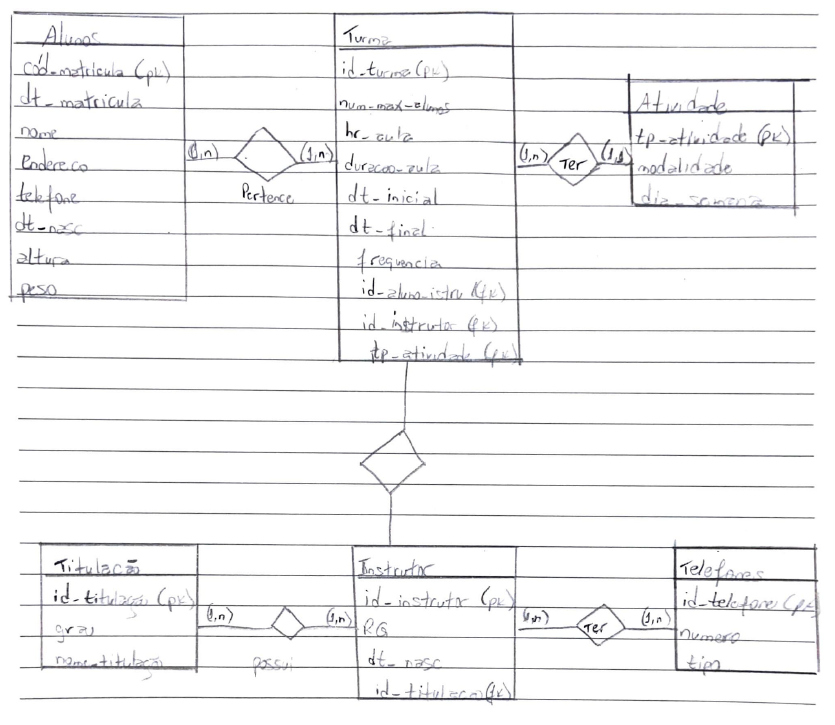 Alunos
cód-matricula (pk)
dt_matricula
nome
Endereco
telefone
dt-nasc
altura
peso
(1,n)
(1,n)
Pertence
Turma
id-turma (pk)
num-max-alunos
hr_aula
duracao-aula
dt-inicial
dt-final
frequencia
id-aluno-istru (fk)
id_instrutor (fk)
tp-atividade (fk)
(1,n)
Ter
(1,1)
Atividade
tp-atividade (pk)
modalidade
dia_semana
Titulação
id-titulaçao (pk)
grau
nome-titulaçao
(1,n)
(1,n)
possui
Instrutor
id-instrutor (pk)
RG
dt-nasc
id-titulacao (fk)
(1,n)
Ter
(1,n)
Telefones
id-telefone (pk)
numero
tipo